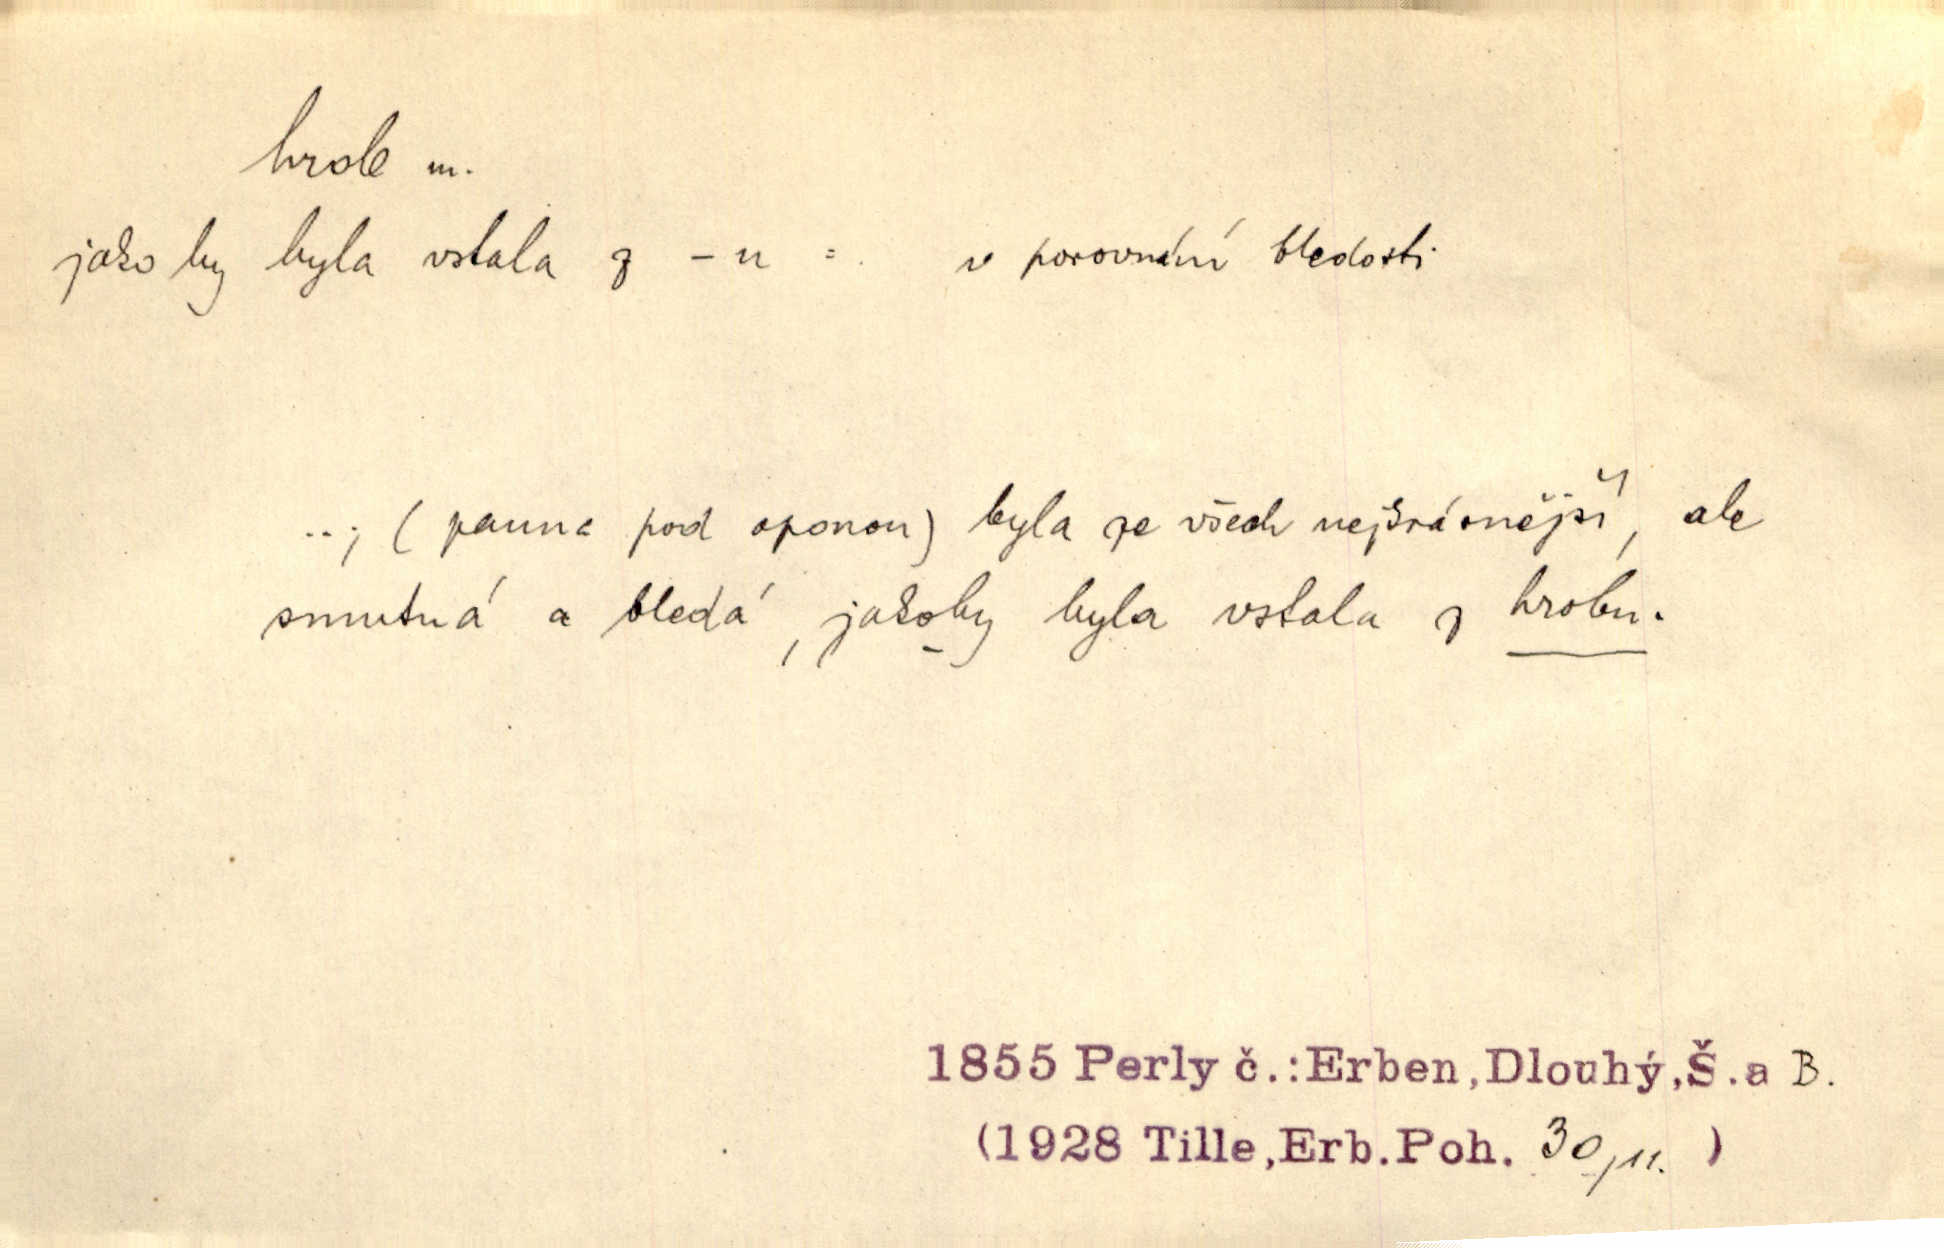 hrob m.
jako by byla vstala z – u = v porovnání bledosti
..; (panna pod oponou) byla ze všech nejkrásnější, ale
smutná a bledá, jakoby byla vstala z hrobu.
1855 Perly č.:Erben,Dlouhý,Š.a B.
(1928 Tille,Erb.Poh. 30,11. )